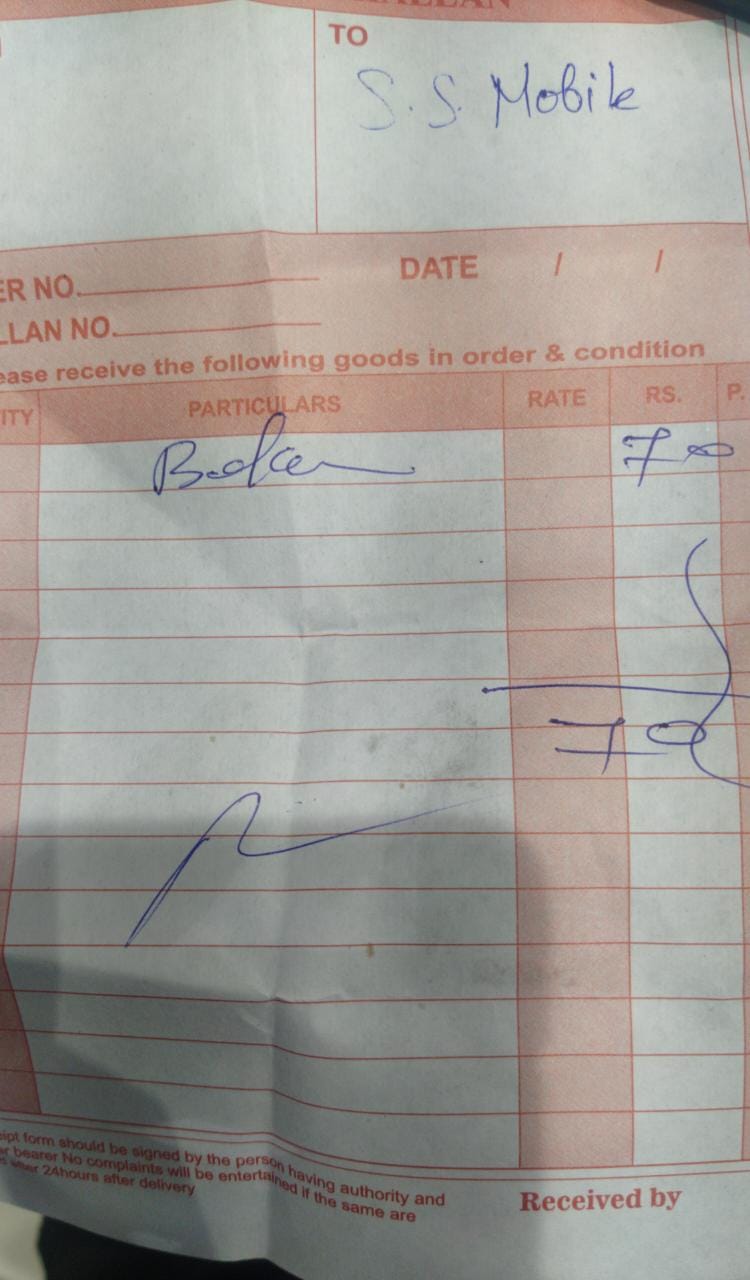 TO
S. S. Mobile
ER NO.
DATE / /
LLAN NO.
ease receive the following goods in order & condition
ITY PARTICULARS RATE RS. P.
70
70
ipt form should be signed by the person having authority and
r bearer No complaints will be entertained if the same are
after 24hours after delivery
Received by